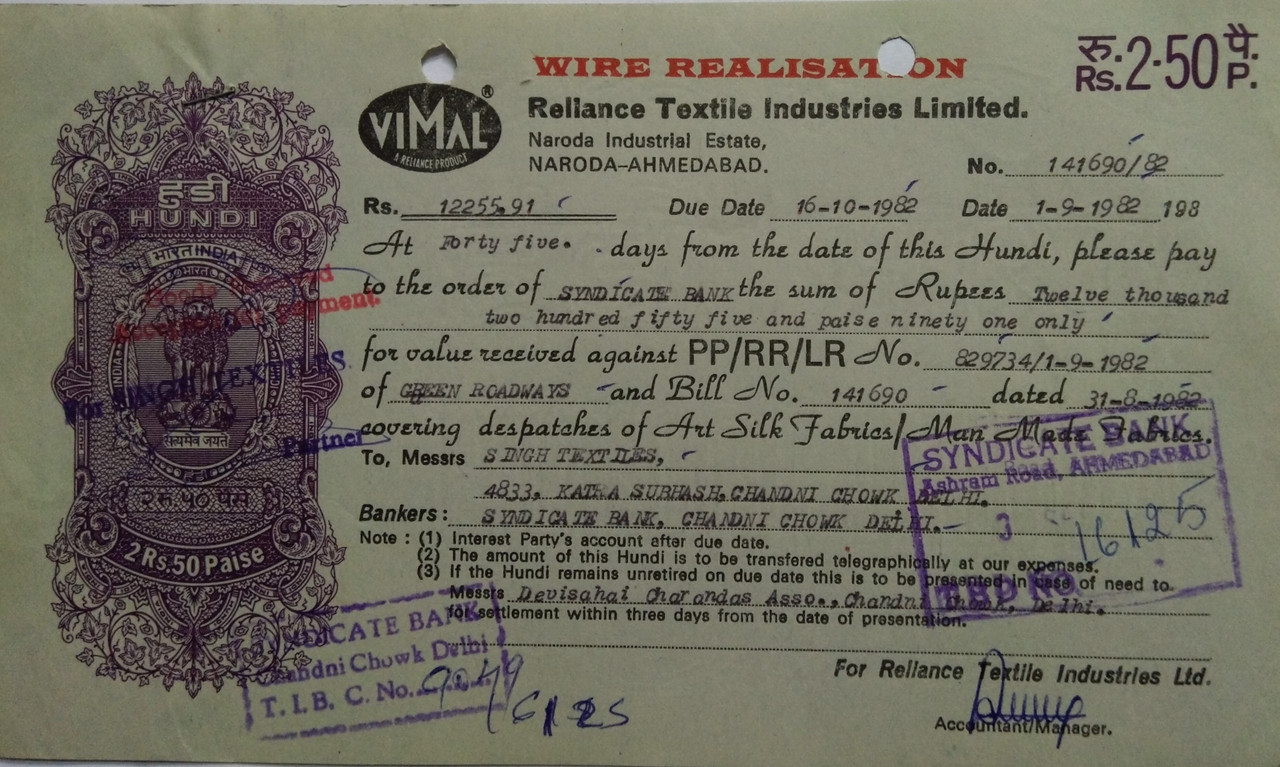 WIRE REALISATION
रु. 2.50 पै.
Rs. P.
VIMAL ®
A RELIANCE PRODUCT
Reliance Textile Industries Limited.
Naroda Industrial Estate,
NARODA–AHMEDABAD.
No. 141690/82
हुंडी
HUNDI
भारत INDIA
भारत
INDIA
सत्यमेव जयते
२ रु ५० पैसे
2 Rs. 50 Paise
Rs. 12255.91 Due Date 16-10-1982 Date 1-9-1982 198
At Forty five. days from the date of this Hundi, please pay
to the order of SYNDICATE BANK the sum of Rupees Twelve thousand
two hundred fifty five and paise ninety one only
for value received against PP/RR/LR No. 829734/1-9-1982
of GREEN ROADWAYS and Bill No. 141690 dated 31-8-1982
covering despatches of Art Silk Fabrics/Man Made Fabrics.
To, Messrs SINGH TEXTILES,
4833, KATRA SUBHASH, CHANDNI CHOWK DELHI.
Bankers: SYNDICATE BANK, CHANDNI CHOWK DELHI.
Note : (1) Interest Party's account after due date.
(2) The amount of this Hundi is to be transfered telegraphically at our expenses.
(3) If the Hundi remains unretired on due date this is to be presented in case of need to
Messrs Devisahai Charandas Asso., Chandni Chowk, Delhi.
for settlement within three days from the date of presentation.
For Reliance Textile Industries Ltd.
Accountant/Manager.
For SINGH TEXTILES.
Partner
payment.
SYNDICATE BANK
Ashram Road, AHMEDABAD
3
16125
SYNDICATE BANK
Chandni Chowk Delhi
T. I. B. C. No. 9049